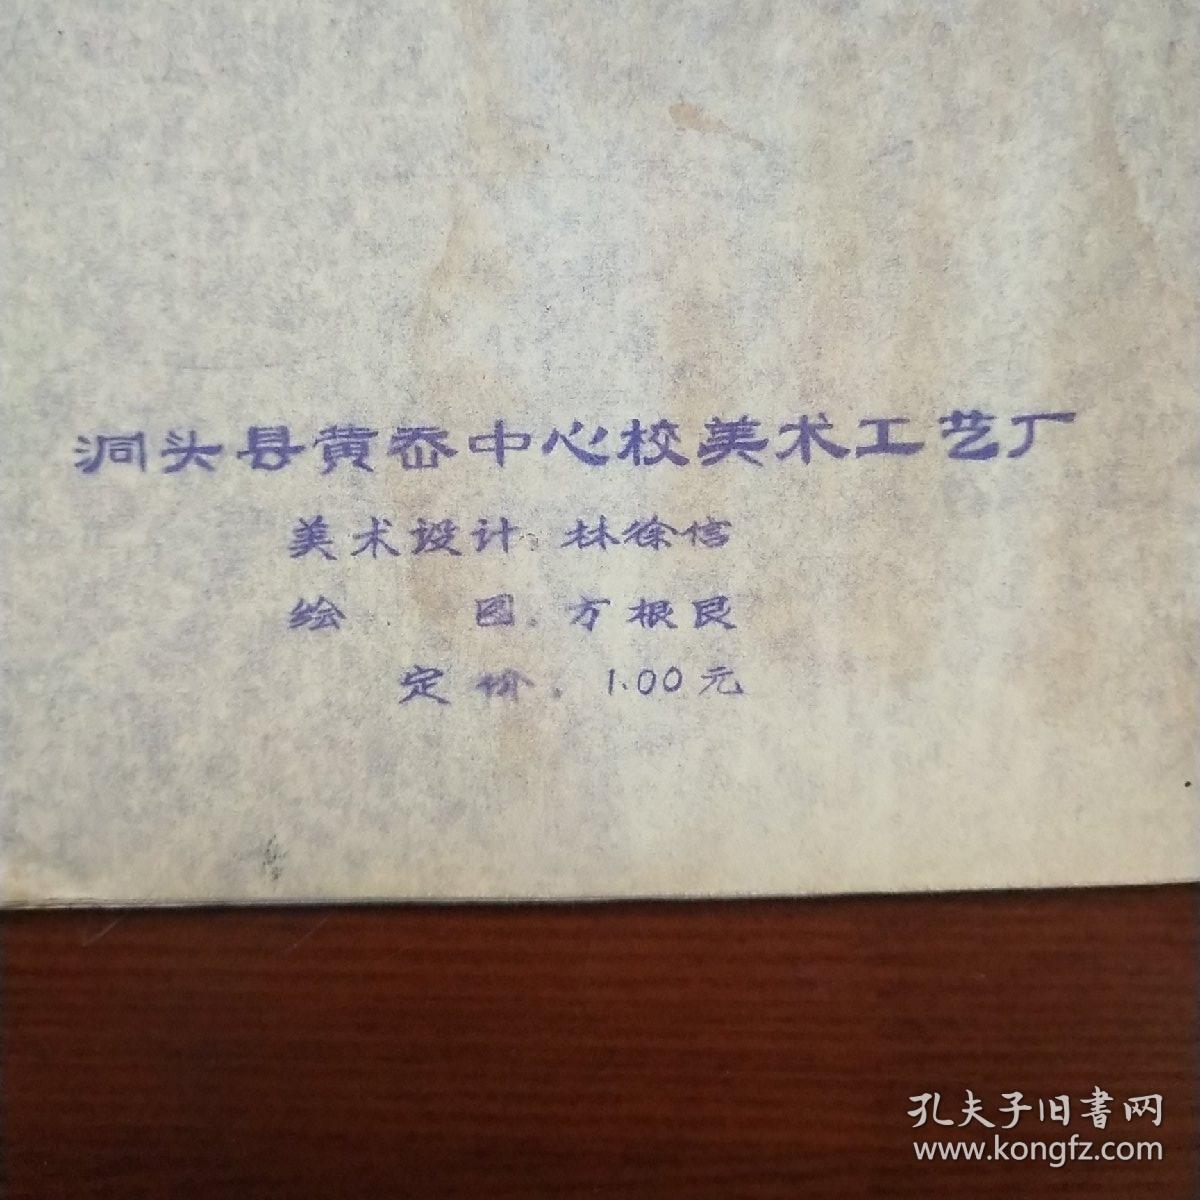 洞头县黄岙中心校美术工艺厂
美术设计：林徐信
绘 图：方根良
定价：1.00元
孔夫子旧書网
www.kongfz.com